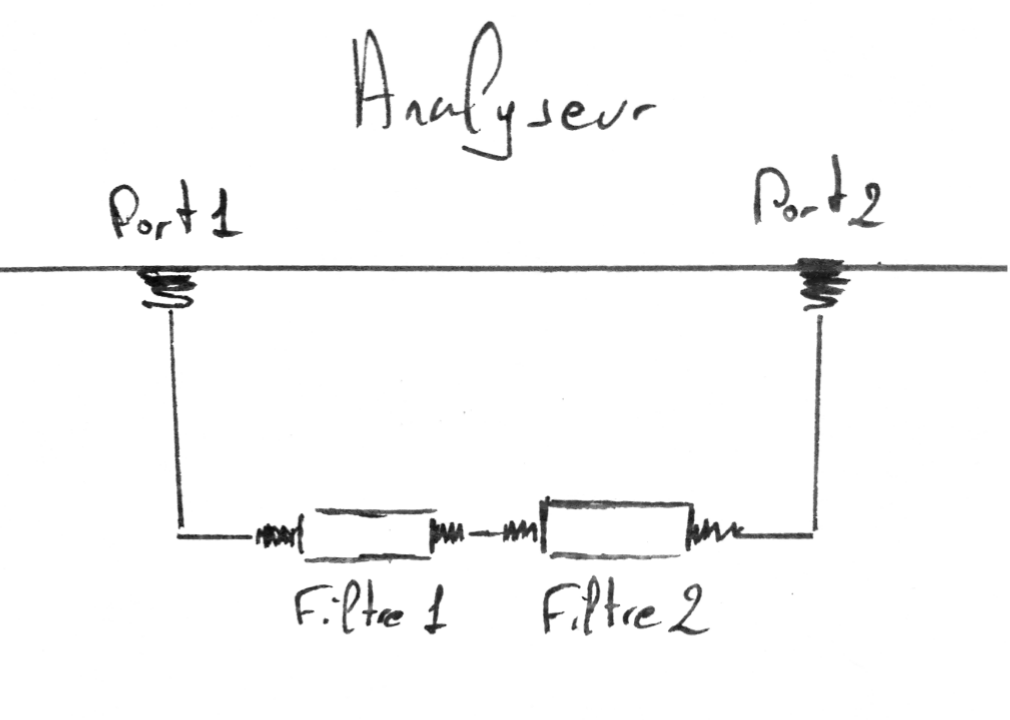 Analyseur
Port 1
Port 2
Filtre 1
Filtre 2